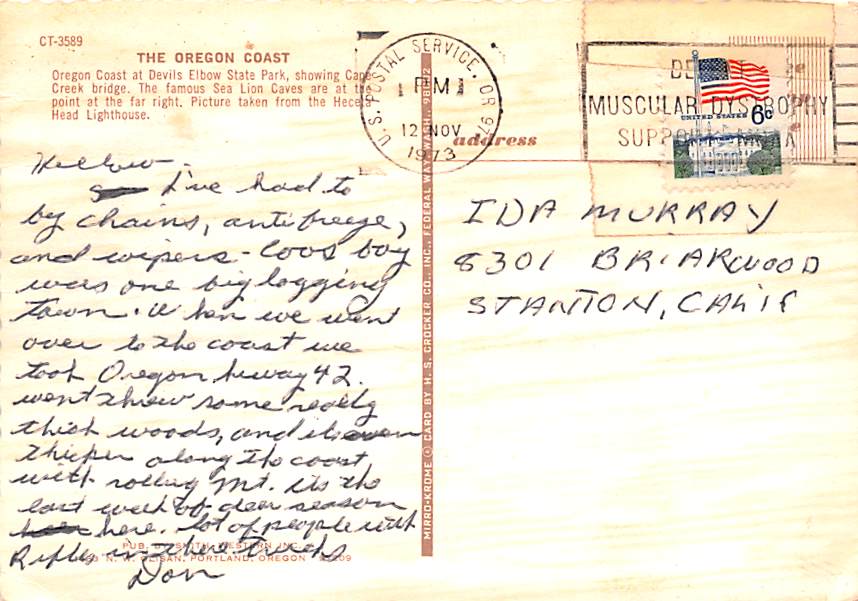 CT-3589
THE OREGON COAST
Oregon Coast at Devils Elbow State Park, showing Cape
Creek bridge. The famous Sea Lion Caves are at the
point at the far right. Picture taken from the Heceta
Head Lighthouse.
U.S. POSTAL SERVICE, OR 97
PM
12 NOV
1973
MUSCULAR DYSTROPHY
SUPPORT
UNITED STATES 6c
address
Hellow -
I've had to
by chains, antifreeze,
and wipers - Coos bay
was one big logging
town. When we went
over to the coast we
took Oregon hiway 42.
went threw some really
thick woods, and its even
thicker along the coast
with rolling Mt. its the
last week of deer season
here. lot of people with
Rifles in there trucks
Don
IDA MURRAY
8301 BRIARWOOD
STANTON, CALIF
MIRRO-KROME ® CARD BY H. S. CROCKER CO., INC., FEDERAL WAY, WASH.
PUB. BY SMITH-WESTERN INC.
N. W. GLISAN, PORTLAND, OREGON